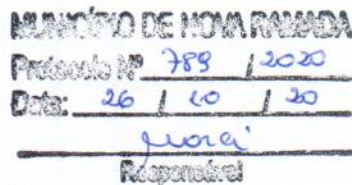 MUNICÍPIO DE NOVA RAMADA
Protocolo Nº 789 / 2020
Data: 26 / 10 / 20
Responsável